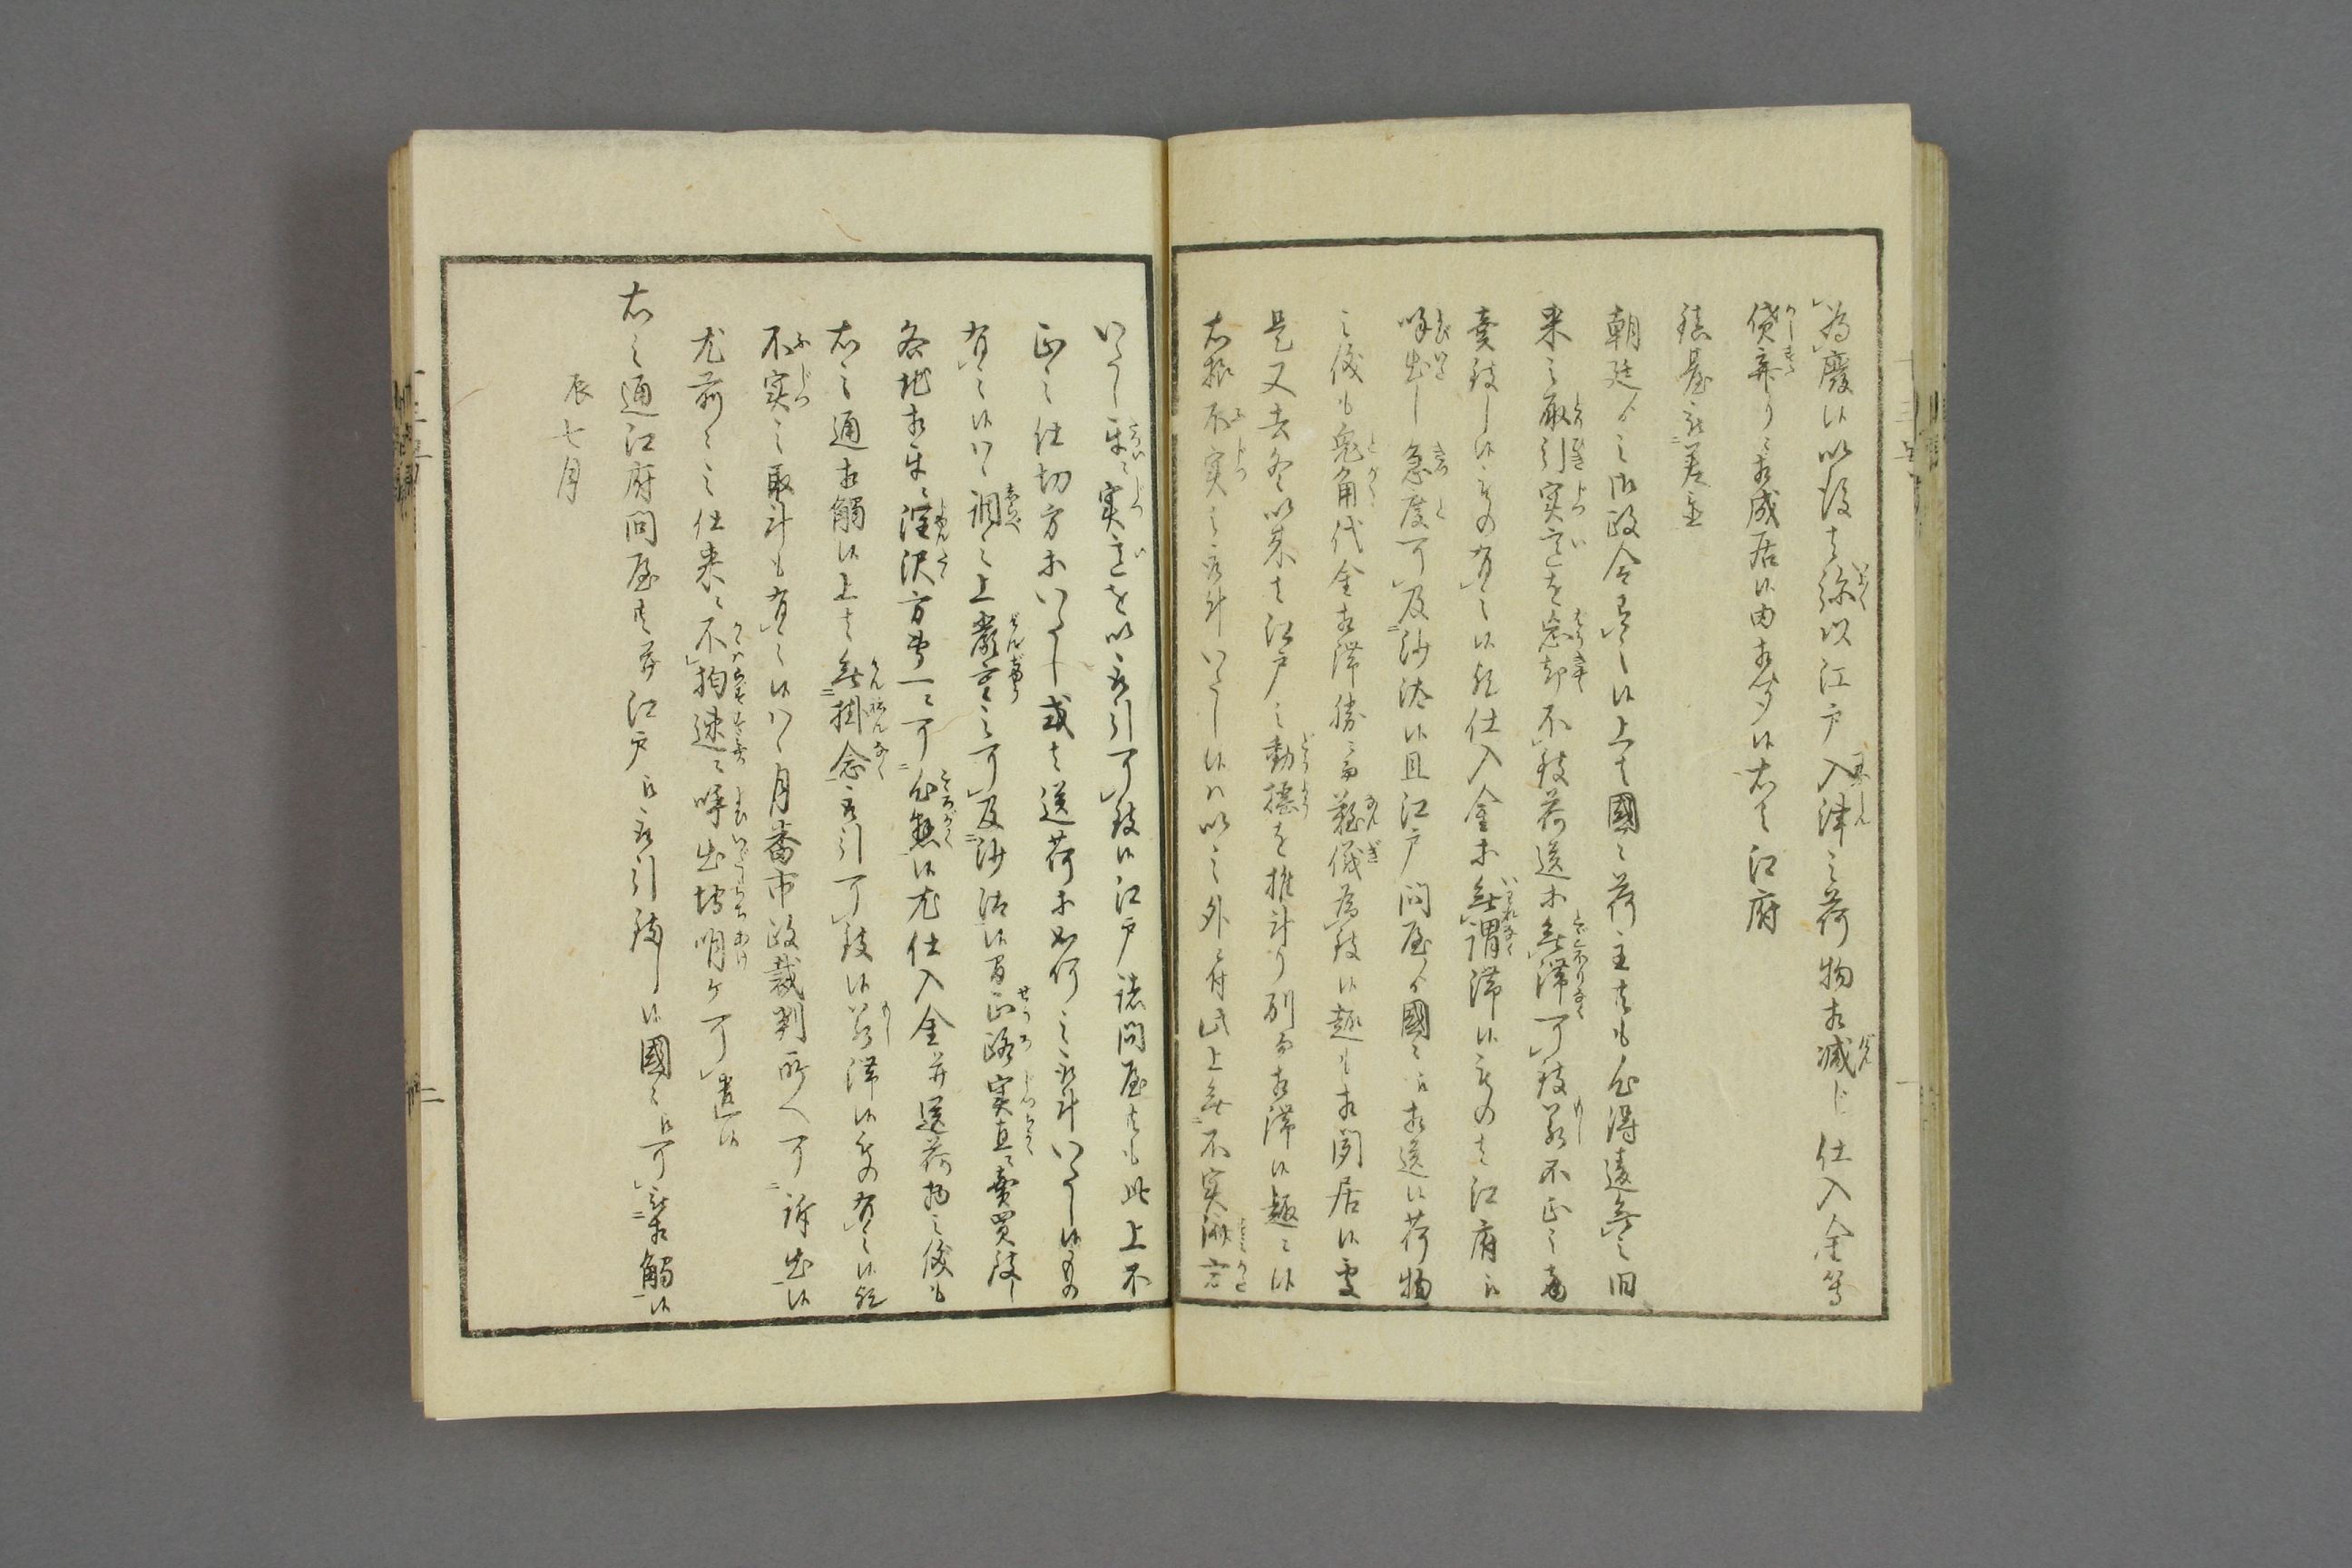 為廢候以後者弥以江戸入津之荷物相減じ仕入金等
貸弃りニ相成居候由相聞候右者江府
鎮臺被差置
朝廷ゟ之御政令有之候上者國々荷主共も心得違無之旧
来之取引実意を忘却不致荷送等無滞可致若不正之
賣致し候もの有之候歟仕入金等無謂滞候もの者江府江
呼出し急度可及沙汰候且江戸問屋ゟ國々江相送候荷物
之儀も兎角代金相滞勝ニ而難儀為致候趣も相聞居候處
是又去冬以来者江戸之動揺を推計り別而相滞候趣ニ候
右様不実之取計いたし候ハ以之外ニ付此上無不実
いたし実意を以取引可致候江戸諸問屋共も此上不
正之仕切方等いたし或者送荷等如何之取計いたし候もの
有之候ハヽ調之上嚴重之可及沙汰候間正路実直ニ賣買致し
各地相互ニ潤沢方専一ニ可心懸候尤仕入金并送荷物之儀も
右之通相觸候上者無掛念取引可致候若滞候もの有之候歟
不実之取計も有之候ハヽ月番市政裁判所へ可訴出候
尤前々之仕来ニ不拘速ニ呼出埒明ケ可遣候
右之通江府問屋共并江戸江取引致し候國々江可被相觸候
辰七月